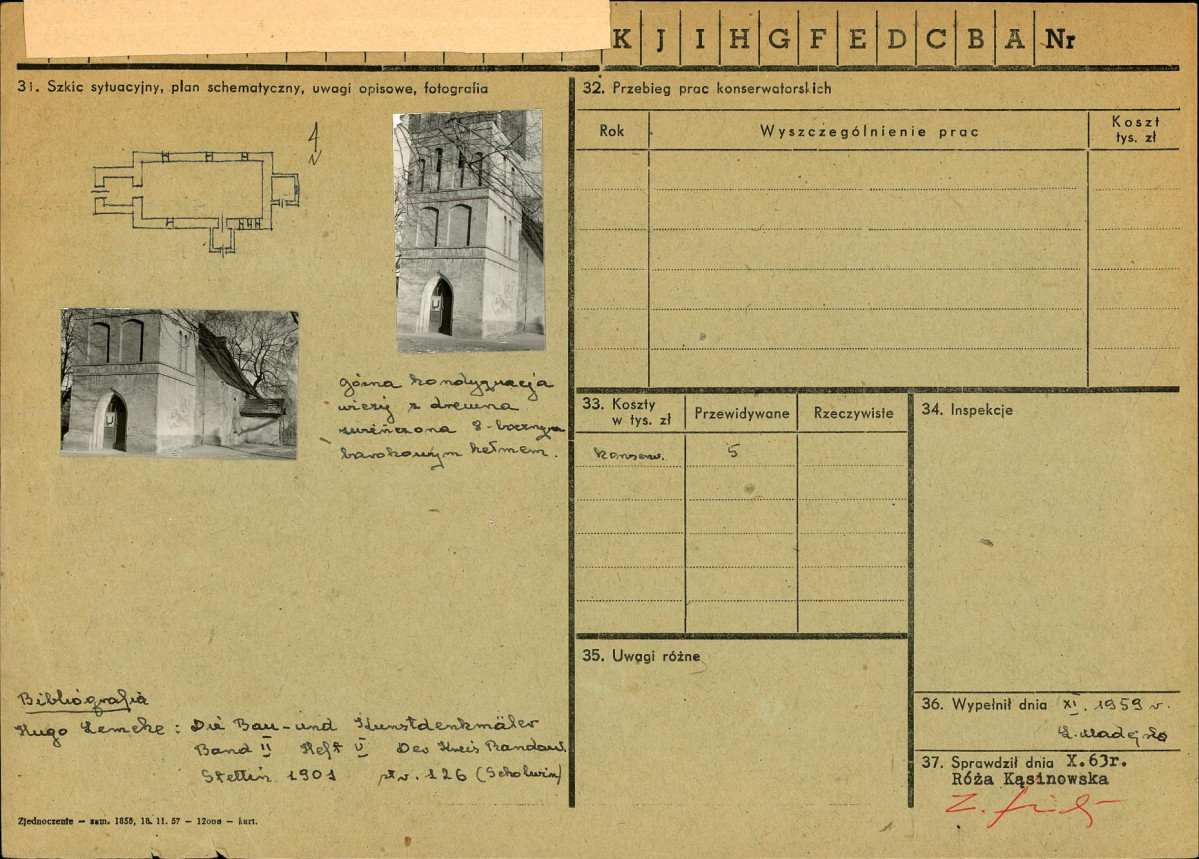 K J I H G F E D C B A Nr
31. Szkic sytuacyjny, plan schematyczny, uwagi opisowe, fotografia
N
górna kondygnacja
wieży z drewna
zwieńczona 8-bocznym
barokowym hełmem.
Bibliografia
Hugo Lemcke: Die Bau- und Kunstdenkmäler
Band II Heft V Der Kreis Randow.
Stettin 1901 str. 126 (Scholwin)
Zjednoczenie — zam. 1858, 18. 11. 57 — 12000 — kurt.
32. Przebieg prac konserwatorskich
Rok Wyszczególnienie prac Koszt
tys. zł
33. Koszty
w tys. zł Przewidywane Rzeczywiste
konserw. 5
34. Inspekcje
35. Uwagi różne
36. Wypełnił dnia XI. 1959 r.
37. Sprawdził dnia X.63r.
Róża Kąsinowska